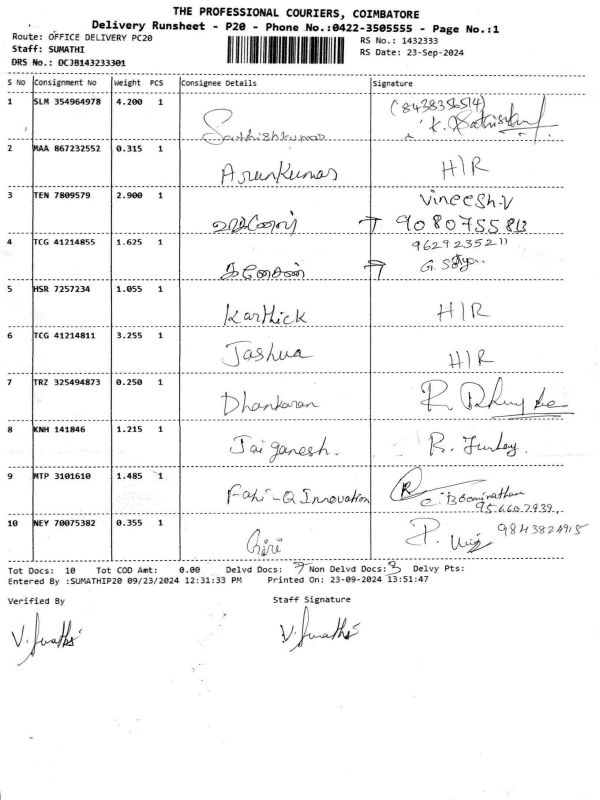 THE PROFESSIONAL COURIERS, COIMBATORE
Delivery Runsheet - P20 - Phone No.:0422-3505555 - Page No.:1
Route: OFFICE DELIVERY PC20
RS No.: 1432333
Staff: SUMATHI
RS Date: 23-Sep-2024
DRS No.: DCJB143233301
S No Consignment No Weight PCS Consignee Details Signature
1 SLM 354964978 4.200 1 Sathishkumar (8438356514)
2 MAA 867232552 0.315 1 Arunkumar H/R
3 TEN 7809579 2.900 1 Vineesh.V
9080755813
4 TCG 41214855 1.625 1 கணேசன் 9629235211
G. Sathya
5 HSR 7257234 1.055 1 Karthick H/R
6 TCG 41214811 3.255 1 Jashua H/R
7 TRZ 325494873 0.250 1 Dhankaran
8 KNH 141846 1.215 1 Jai ganesh.
9 MTP 3101610 1.485 1 Fahi-Q Innovation C. Boominathan
10 NEY 70075382 0.355 1 Giri 9843824915
Tot Docs: 10 Tot COD Amt: 0.00 Delvd Docs: 7 Non Delvd Docs: 3 Delvy Pts:
Entered By :SUMATHIP20 09/23/2024 12:31:33 PM Printed On: 23-09-2024 13:51:47
Verified By Staff Signature
V. Sumathi V. Sumathi